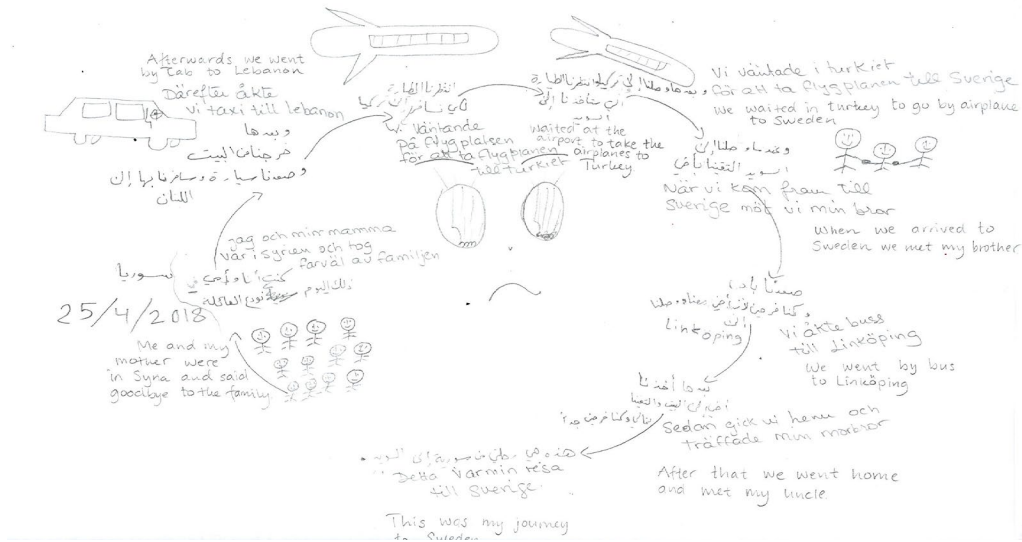 سوريا
25/4/2018
Jag och min mamma
var i Syrien och tog
farväl av familjen
كنت أنا وأمي في
ذلك اليوم نودع العائلة
Me and my
mother were
in Syria and said
goodbye to the family
Afterwards we went
by Cab to Lebanon
Därefter åkte
vi taxi till Lebanon
وبعدها
خرجنا من البيت
وصعدنا سيارة وسافرنا بها إلى
اللبنان
انتظرنا الطيارة
لكي نسافر إلى تركيا
Vi Väntande
på flygplatsen
för att ta flygplanen
till turkiet
waited at the
airport to take the
airplanes to
Turkey
وبعدما وصلنا إلى تركيا انتظرنا الطيارة
السويد
Vi väntade i turkiet
för att ta flygplanen till Sverige
we waited in turkey to go by airplane
to Sweden
وعندما وصلنا إلى
السويد التقينا بأخي
När vi kom fram till
Sverige möt vi min bror
When we arrived to
Sweden we met my brother
صعدنا باد
إلى
Linköping
Vi åkte buss
till Linköping
We went by bus
to Linköping
بعدها أخذنا
Sedan gick vi hem och
träffade min morbror
After that we went home
and met my uncle.
هذه هي رحلتي من سورية إلى السويد.
Detta Var min resa
till Sverige.
This was my journey
to Sweden